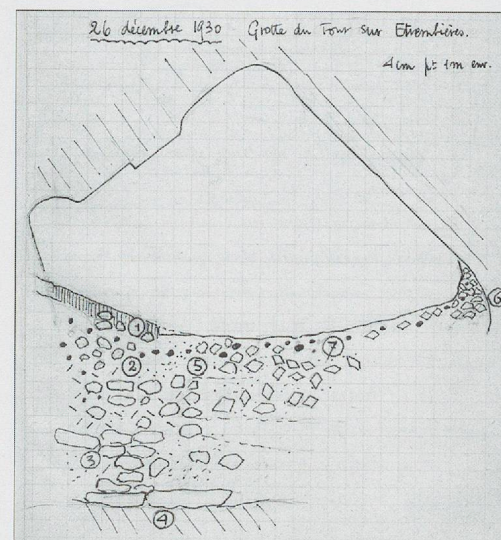 26 décembre 1930 Grotte du Four sur Etrembières.
4 cm pr 1m env.
1
2
5
7
6
3
4